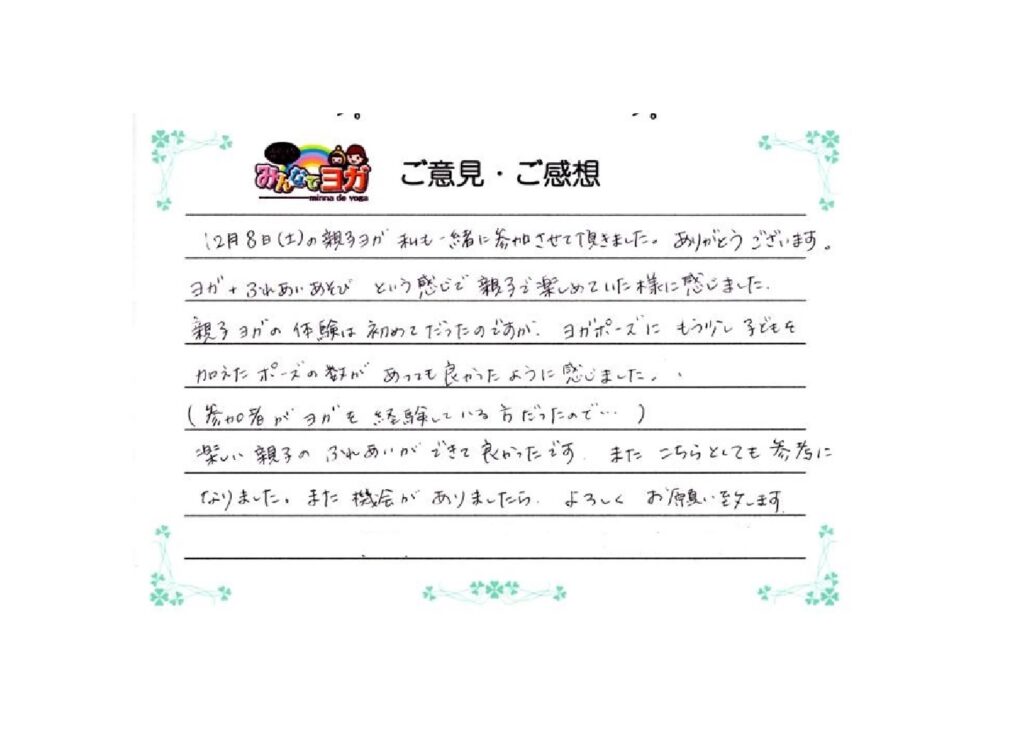 みんなでヨガ
minna de yoga
ご意見・ご感想
12月8日(土)の親子ヨガ 私も一緒に参加させて頂きました。ありがとうございます。
ヨガ+ふれあいあそび という感じで 親子で楽しめていた様に感じました.
親子ヨガの体験は初めてだったのですが、ヨガポーズに もう少し子どもを
加えたポーズの数が あっても良かったように感じました。
(参加者がヨガを経験している方だったので…)
楽しい親子のふれあいができて良かったです. また こちらとしても参考に
なりました。また機会がありましたら、よろしく お願い致します